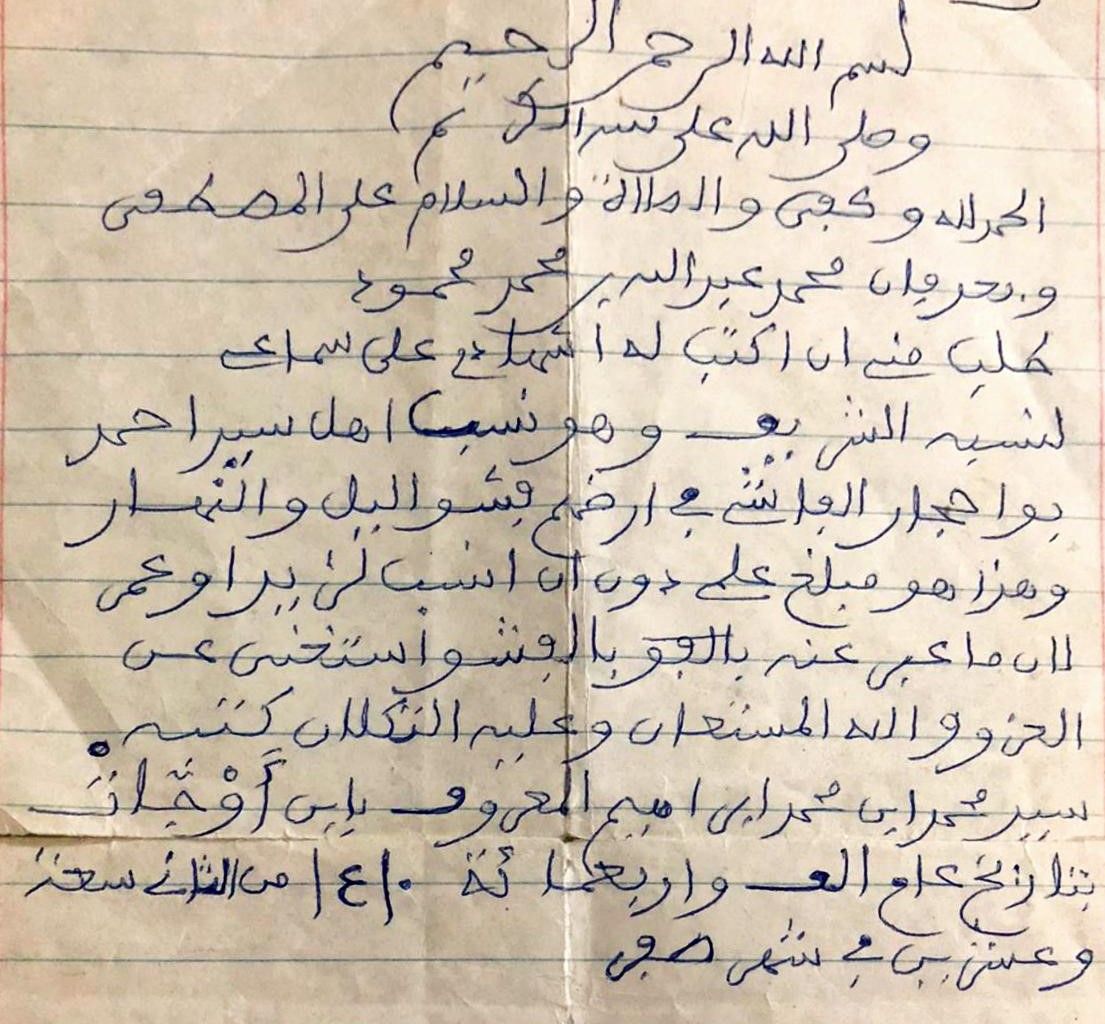 بسم الله الرحمن الرحيم
وصلى الله على نبيه الكريم
الحمد لله وكفى والصلاة والسلام على المصطفى
وبعد فإن محمد عبد الله بن محمد محمود
طلب مني ان اكتب له اشهادي على سماعي
لنسبه الشريف وهو نسب اهل سيد احمد
بوا حجار الفاشي في ارضهم فشو اليل والنهار
وهذا هو مبلغ علمي دون ان انسب لزيد او عمر
لان ما عبر عنه بالفشو استغنى عن
العزو و الله المستعان وعليه التكلان كتبه
سيد محمد ابن محمد ابراهيم المعروف بابن
بتاريخ عام الف واربعمائة ١٤١٠ من
وعشرين في شهر صفر